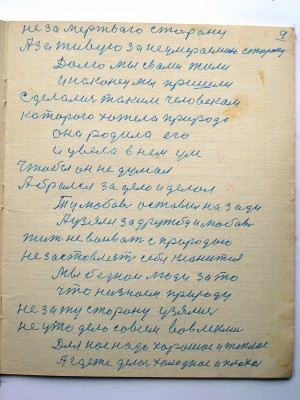 9
не за мертваго сторону
А за живую за не умераемою сторону
Долго мы с вами жили
и наконец мы пришли
Сделались таким человекам
которого хотела природа
она родила его
и увела в нем ум
Чтобы он не думал
А брался за дело и делал
Ту любовь оставил на зади
А узяли за дружбу и любовь
жит не воевать с природою
не заставлять себя клонится
Мы бедном люди за то
что ни знаем природу
не за ту сторону узялис
не у то дело совсем вовлекли
Для нас надо хорошое и теплое
А где те дело холодное и плохое